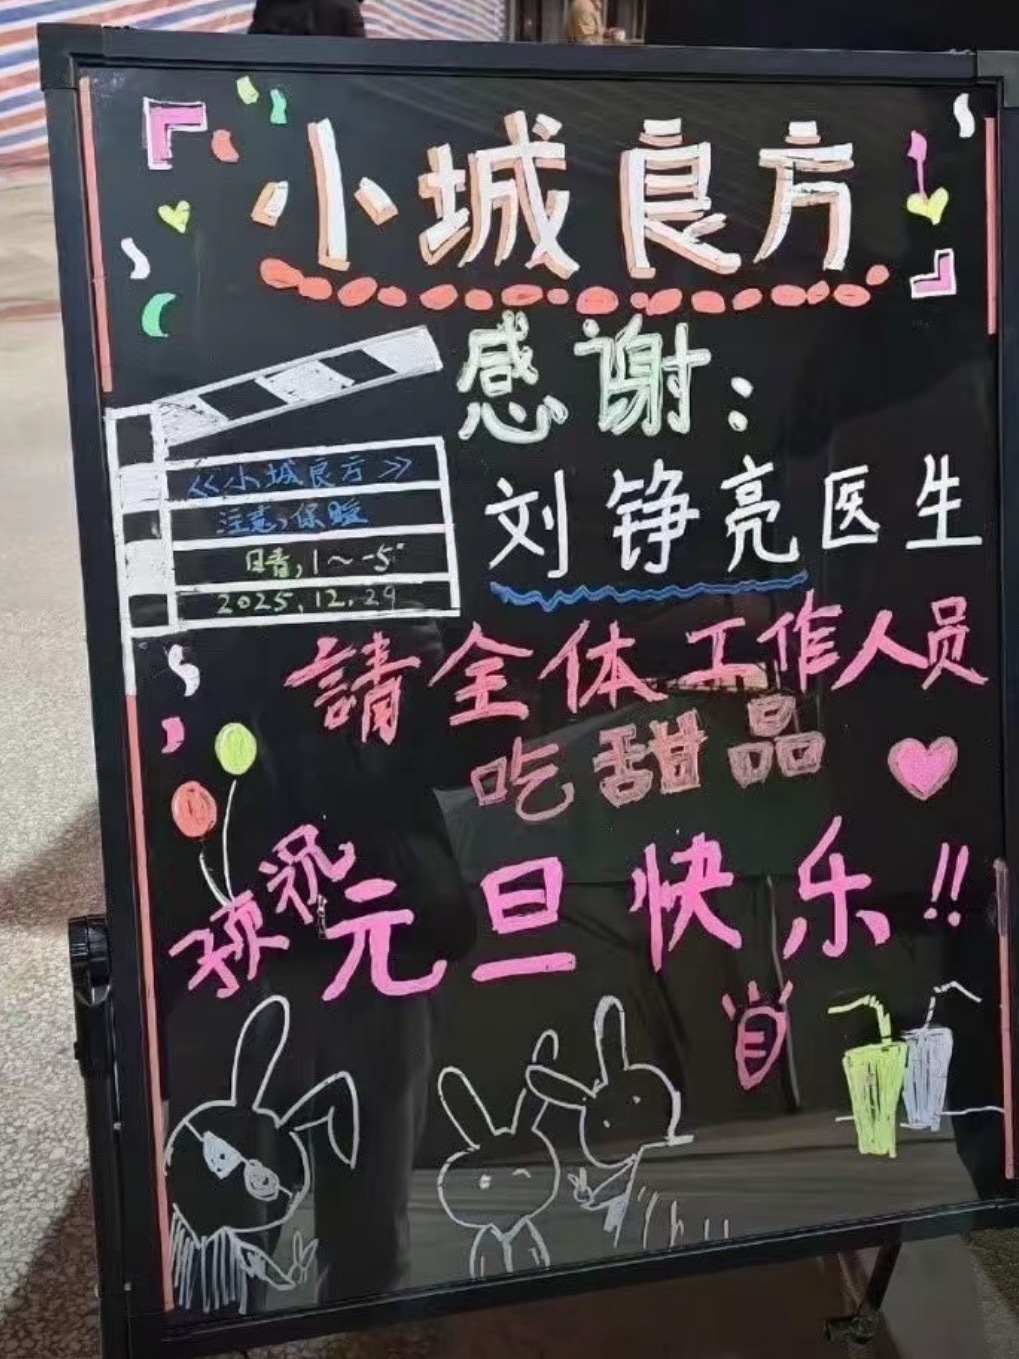 小城良方
感谢:
《小城良方》
注意,保暖
日晴,1~-5°
2025.12.29
刘铮亮医生
請全体工作人员
吃甜品
预祝元旦快乐!!